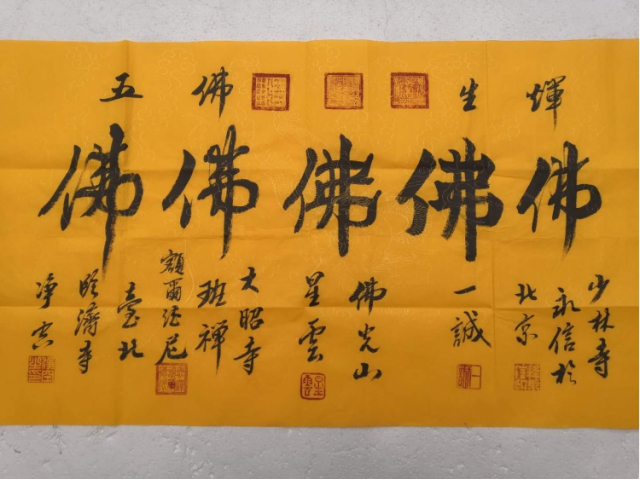 五佛生煇
佛
佛
佛
佛
佛
少林寺
永信於
北京
一誠
佛光山
星雲
大昭寺
班禪
額爾德尼
臺北
臨濟寺
净空